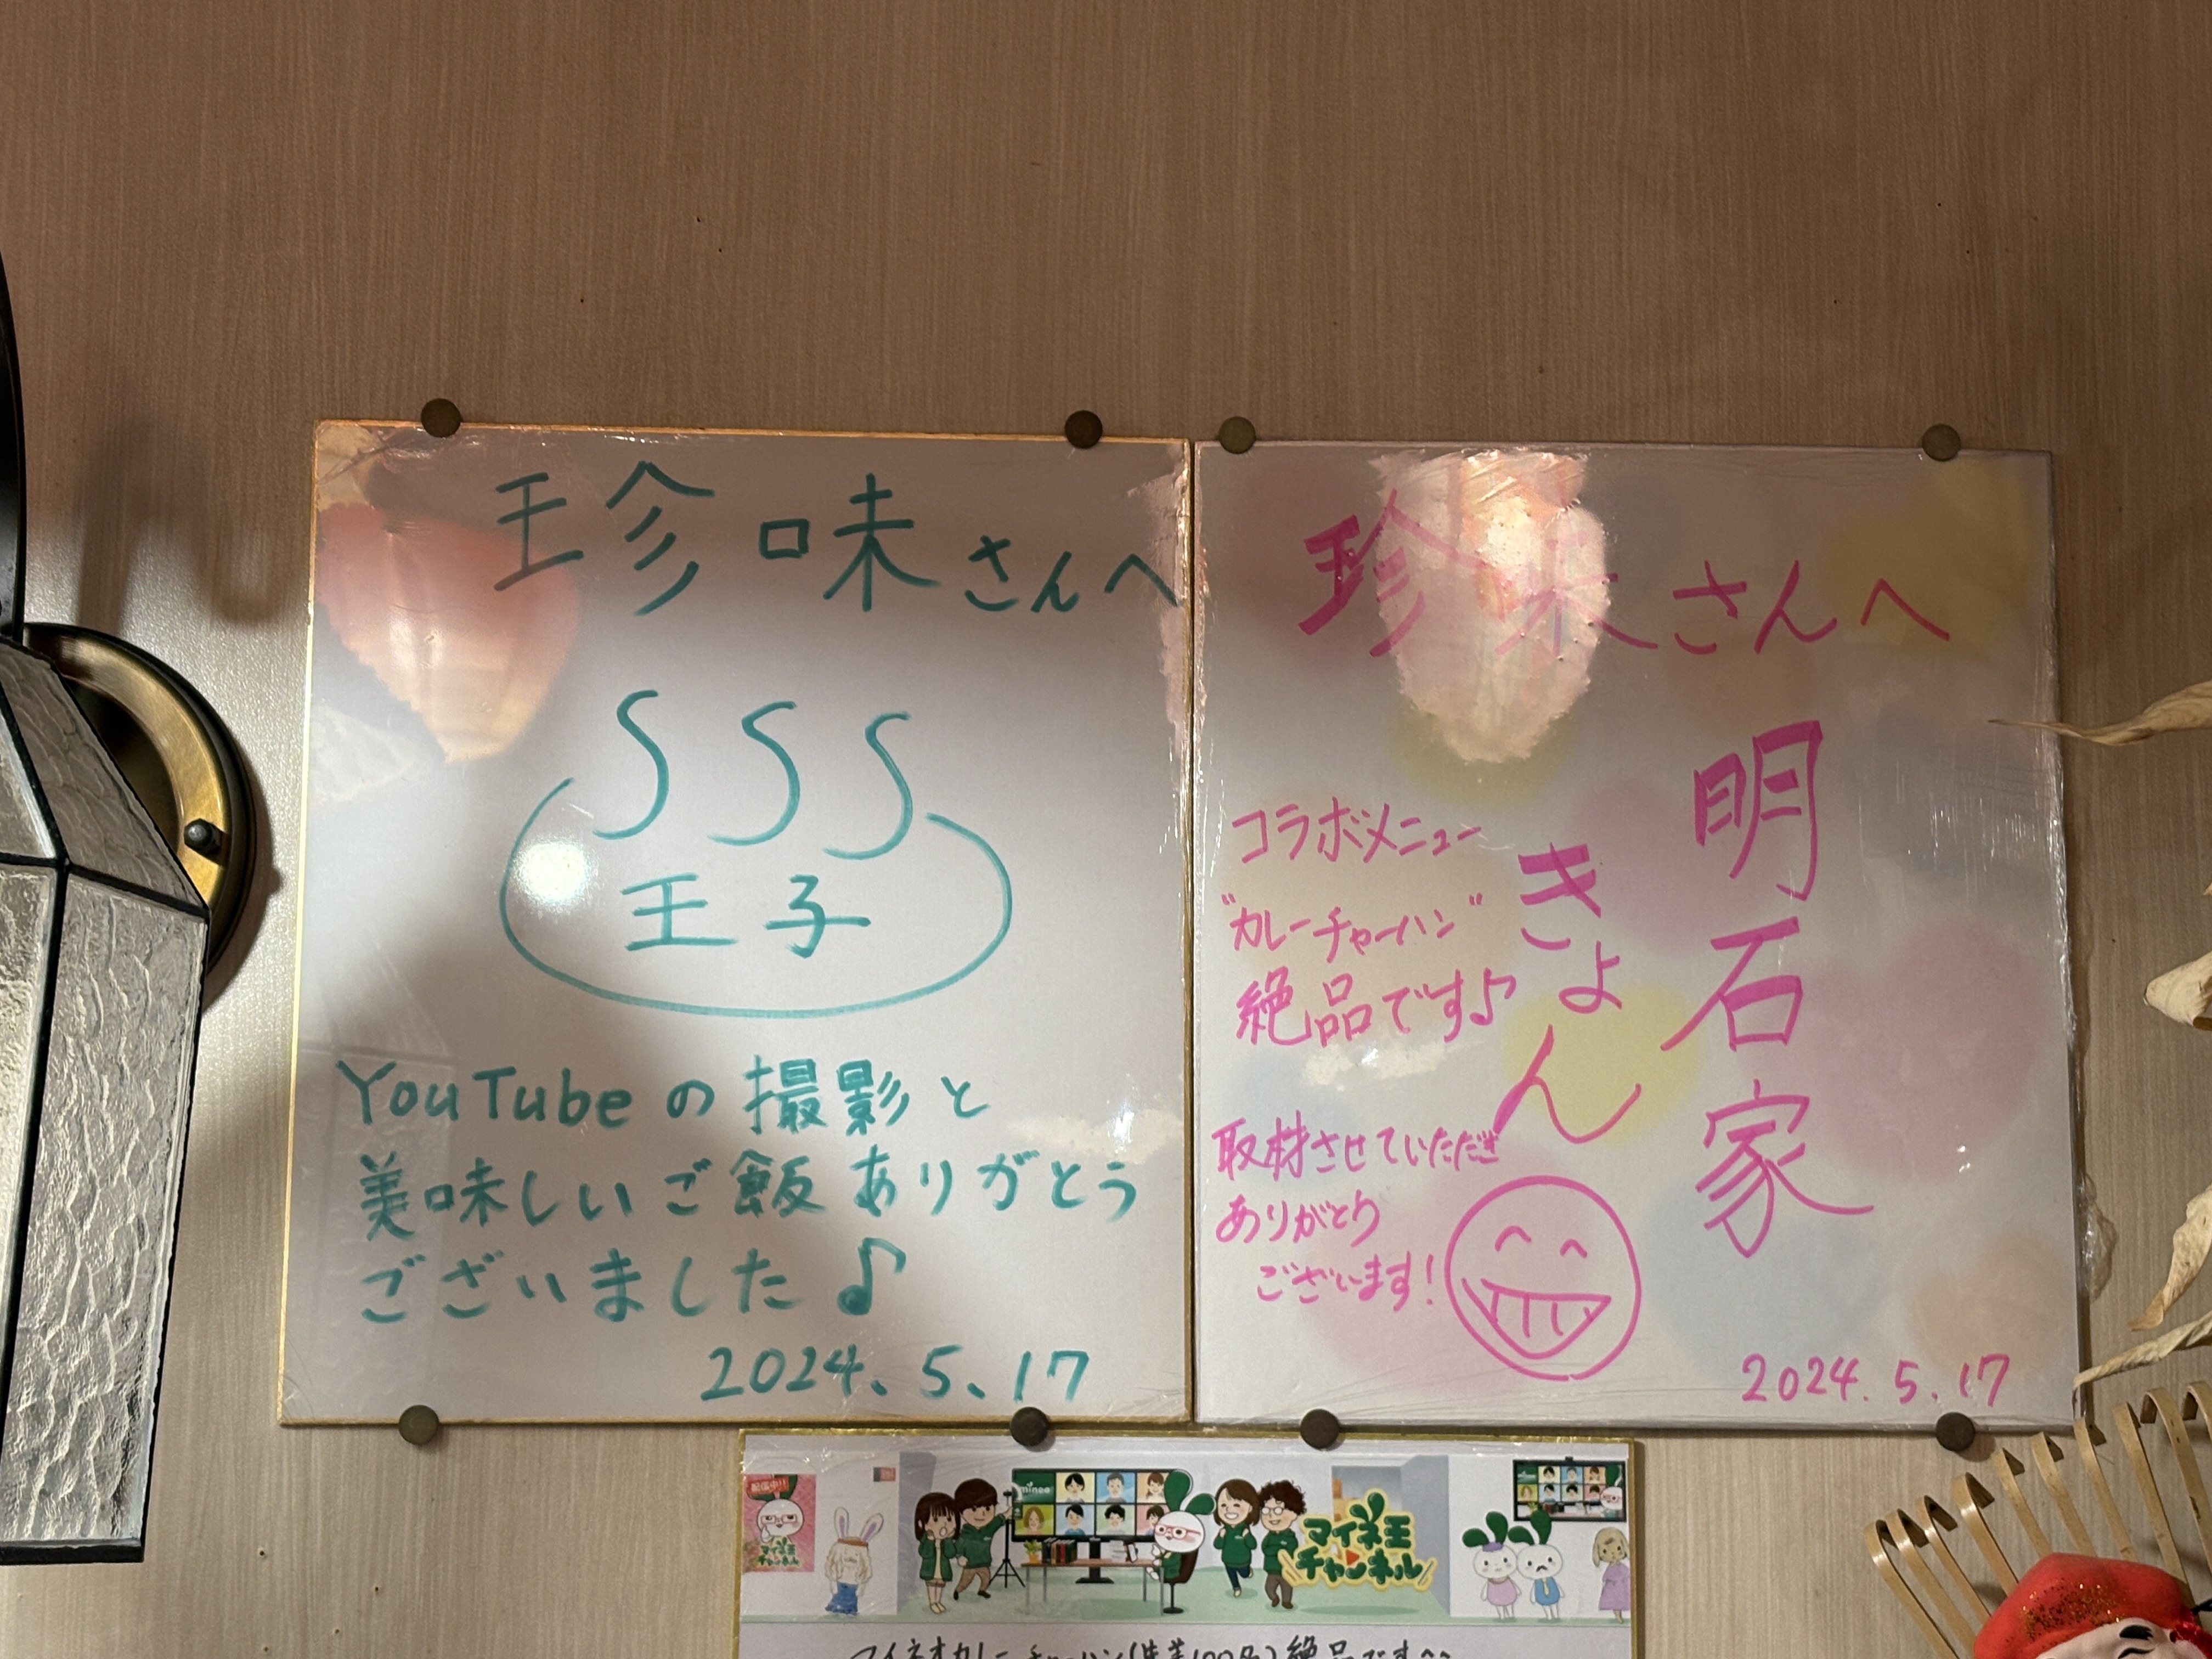 珍味さんへ
王子
YouTubeの撮影と
美味しいご飯ありがとう
ございました♪
2024.5.17
珍味さんへ
明石家
きょん
コラボメニュー
"カレーチャーハン"
絶品です♪
取材させていただき
ありがとう
ございます!
2024.5.17
配信中!!
マイネ王
チャンネル
mineo
マイネ王
チャンネル